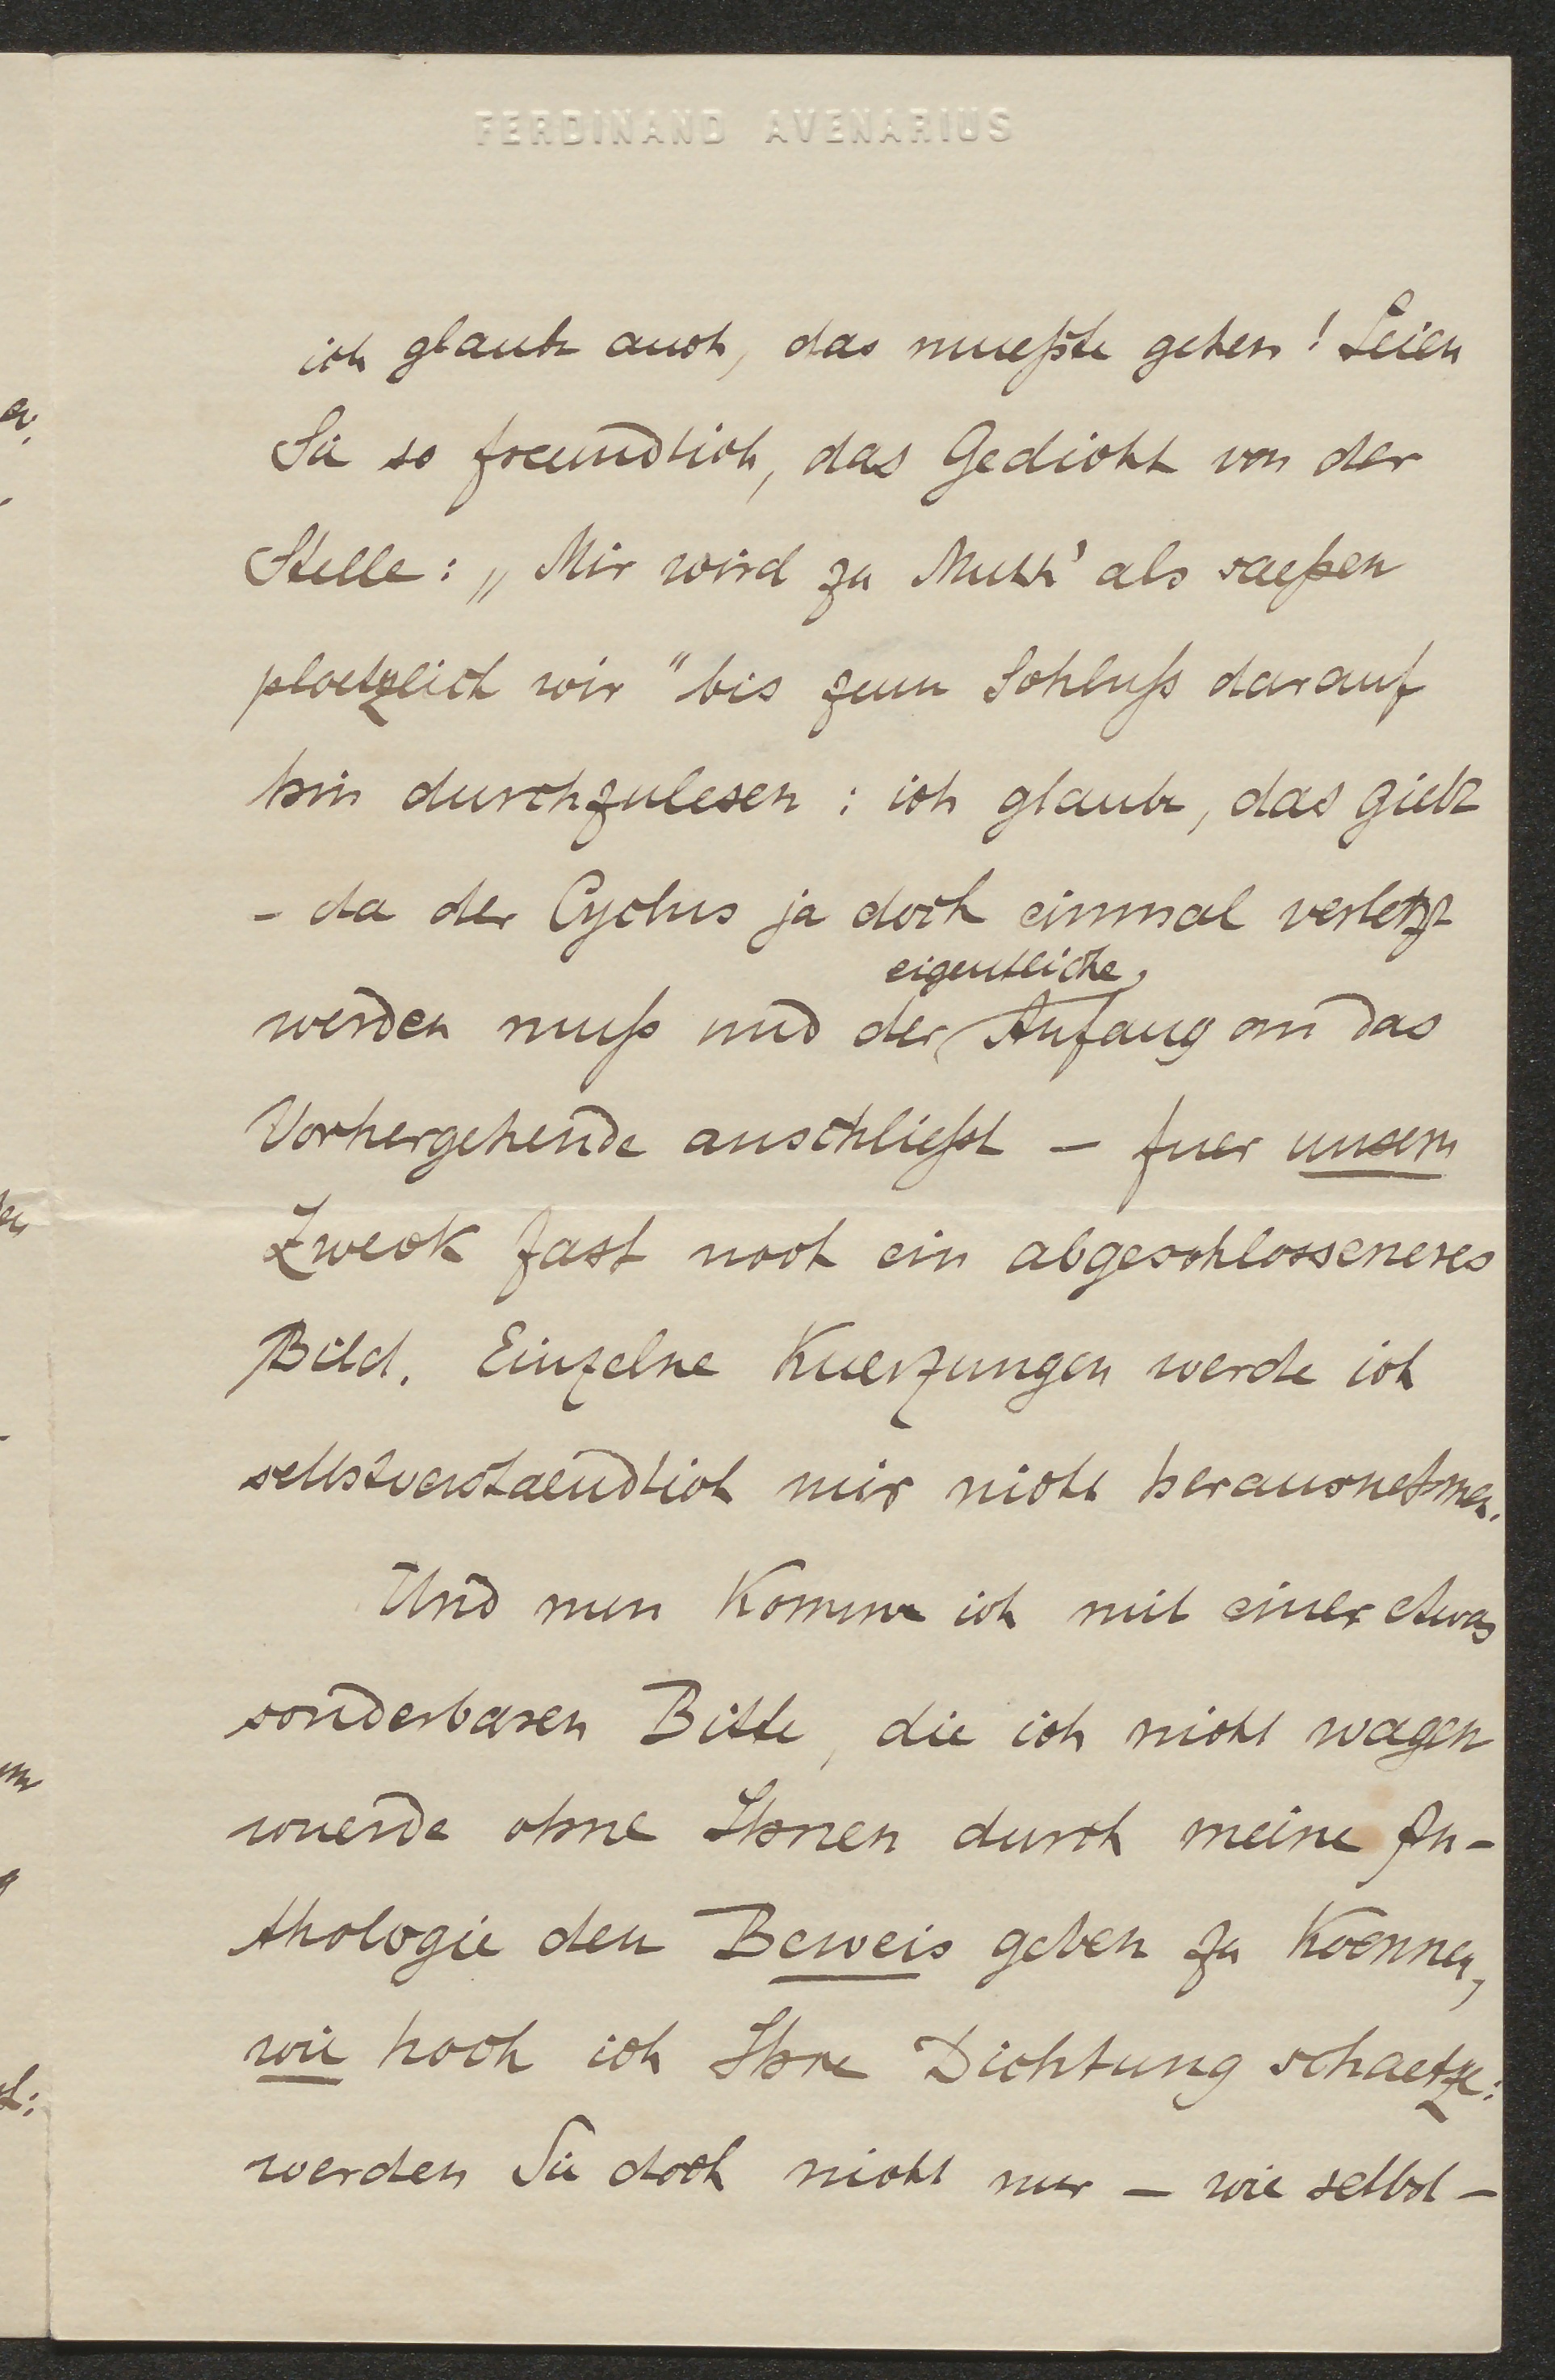 FERDINAND AVENARIUS
ich glaube auch, das mueßte gehen! Seien
Sie so freundlich, das Gedicht von der
Stelle: „Mir wird zu Muth' als saeßen
ploetzlich wir" bis zum Schluß darauf
hin durchzulesen: ich glaube, das giebt
- da der Cyclus ja doch einmal verletzt
eigentliche
werden muß und der Anfang an das
Vorhergehende anschließt – fuer unsern
Zweck fast noch ein abgeschlosseneres
Bild. Einzelne Kuerzungen werde ich
selbstverstaendlich mir nicht herausnehmen.
Und nun komme ich mit einer etwas
sonderbaren Bitte, die ich nicht wagen
wuerde ohne Ihnen durch meine An-
thologie den Beweis geben zu koennen,
wie hoch ich Ihre Dichtung schaetze:
werden Sie doch nicht nur – wie selbst-